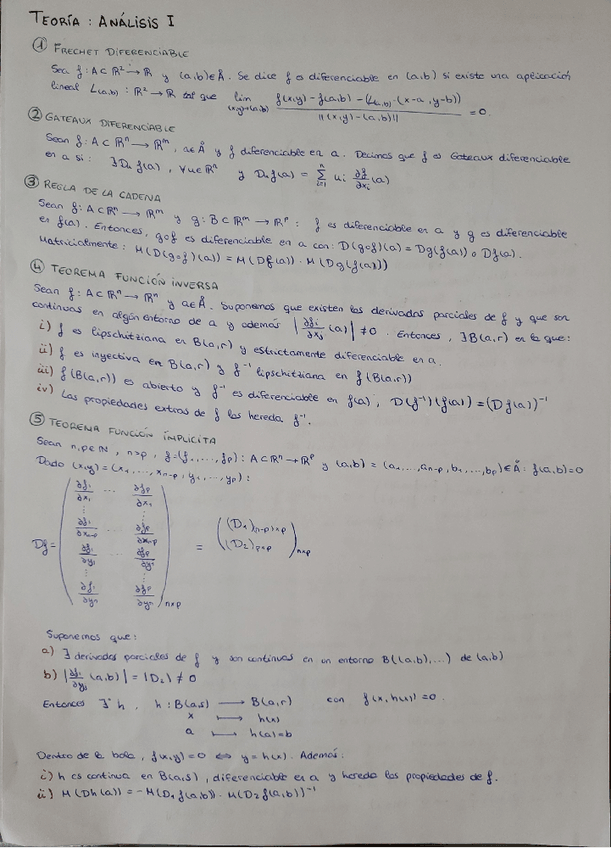 TEORÍA : ANÁLISIS I
① FRECHET DIFERENCIABLE
Sea f: A ⊂ ℝ² → ℝ y (a,b) ∈ Å. Se dice f es diferenciable en (a,b) si existe una aplicación
lineal L(a,b) : ℝ² → ℝ tal que lim (x,y)→(a,b) f(x,y) - f(a,b) - (L(a,b) · (x-a, y-b)) / ||(x,y) - (a,b)|| = 0.
② GATEAUX DIFERENCIABLE
Sean f: A ⊂ ℝⁿ → ℝᵐ, a ∈ Å y f diferenciable en a. Decimos que f es Gateaux diferenciable
en a si : ∃ Dᵤ f(a), ∀u ∈ ℝⁿ y Dᵤ f(a) = ∑ⁿᵢ₌₁ uᵢ ∂f/∂xᵢ (a)
③ REGLA DE LA CADENA
Sean f: A ⊂ ℝⁿ → ℝᵐ y g: B ⊂ ℝᵐ → ℝⁿ : f es diferenciable en a y g es diferenciable
en f(a). Entonces, g∘f es diferenciable en a con: D(g∘f)(a) = Dg(f(a)) ∘ Df(a).
Matricialmente : M(D(g∘f)(a)) = M(Df(a)) · M(Dg(f(a)))
④ TEOREMA FUNCIÓN INVERSA
Sean f: A ⊂ ℝⁿ → ℝⁿ y a ∈ Å. Suponemos que existen las derivadas parciales de f y que son
continuas en algún entorno de a y además |∂fᵢ/∂xⱼ (a)| ≠ 0. Entonces, ∃ B(a,r) en la que:
i) f es lipschitziana en B(a,r) y estrictamente diferenciable en a.
ii) f es inyectiva en B(a,r) y f⁻¹ lipschitziana en f(B(a,r))
iii) f(B(a,r)) es abierto y f⁻¹ es diferenciable en f(a), D(f⁻¹)(f(a)) = (Df(a))⁻¹
iv) Las propiedades extras de f las hereda f⁻¹.
⑤ TEOREMA FUNCIÓN ÍMPLICITA
Sean n,p ∈ ℕ, n>p, f=(f₁,...,fₚ): A ⊂ ℝⁿ → ℝᵖ y (a,b) = (a₁,...,aₙ₋ₚ, b₁,...,bₚ) ∈ Å : f(a,b)=0
Dado (x,y) = (x₁,...,xₙ₋ₚ, y₁,...,yₚ) :
∂f₁/∂x₁ ... ∂fₚ/∂x₁
⋮ ⋮
∂f₁/∂xₙ₋ₚ ∂fₚ/∂xₙ₋ₚ
Df = ∂f₁/∂y₁ ∂fₚ/∂y₁ = ((D₁)₍ₙ₋ₚ₎ₓₚ (D₂)ₚₓₚ)ₙₓₚ
⋮ ⋮
∂f₁/∂yₙ ∂fₚ/∂yₙ nxp
Suponemos que:
a) ∃ derivadas parciales de f y son continuas en un entorno B((a,b),...) de (a,b)
b) |∂fᵢ/∂yⱼ (a,b)| = |D₂| ≠ 0
Entonces ∃* h, h : B(a,s) → B(a,r) con f(x,h(x)) = 0.
x ↦ h(x)
a ↦ h(a)=b
Dentro de la bola, f(x,y)=0 ⇔ y=h(x). Además:
i) h es continua en B(a,s), diferenciable en a y hereda las propiedades de f.
ii) M(Dh(a)) = -M(D₁ f(a,b)) · M(D₂ f(a,b))⁻¹